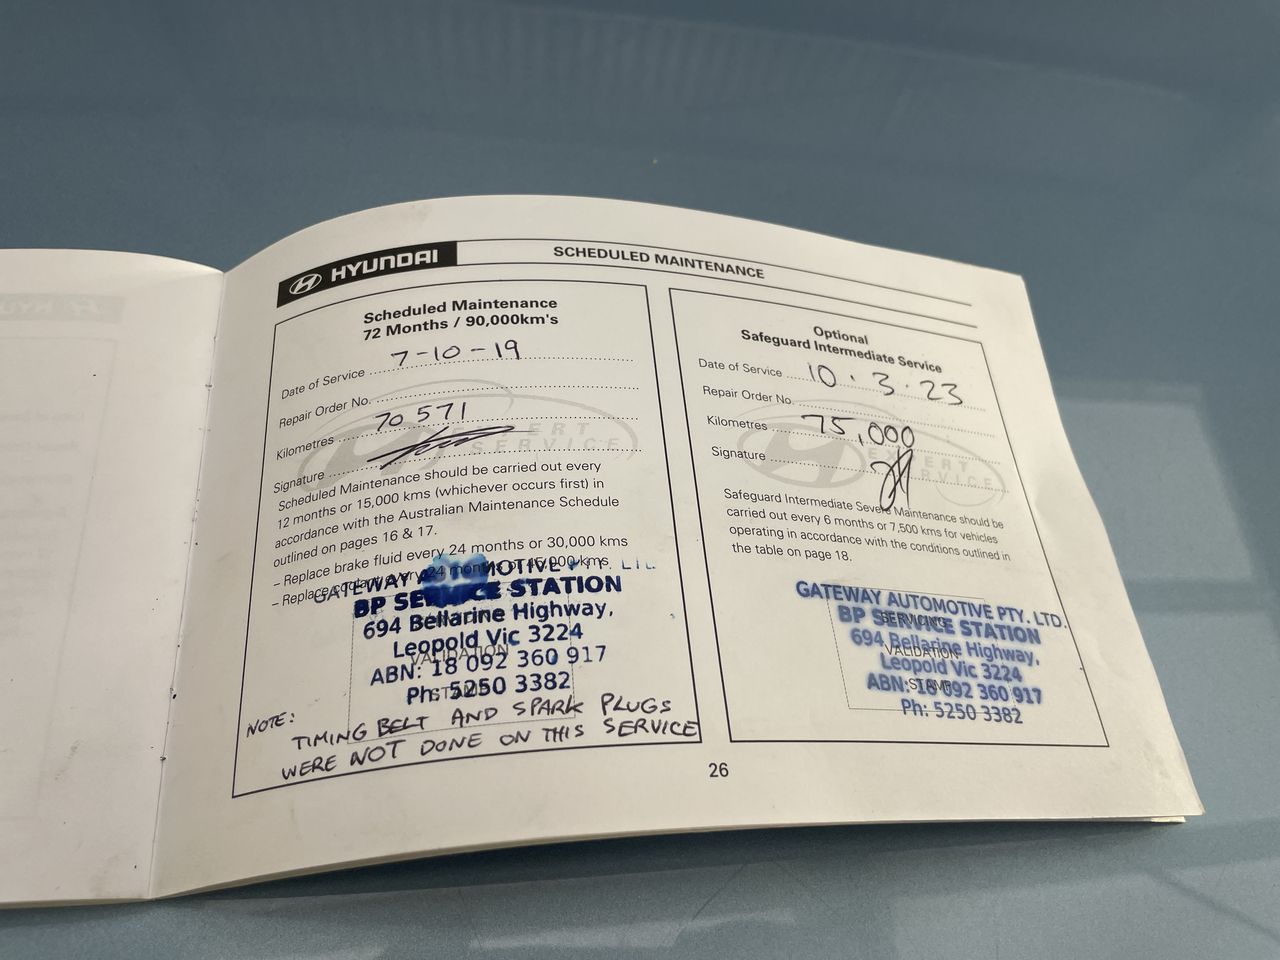 HYUNDAI
SCHEDULED MAINTENANCE
Scheduled Maintenance
72 Months / 90,000km's
Date of Service 7-10-19
Repair Order No.
Kilometres 70 571
Signature
EXPERT
SERVICE
Scheduled Maintenance should be carried out every
12 months or 15,000 kms (whichever occurs first) in
accordance with the Australian Maintenance Schedule
outlined on pages 16 & 17.
– Replace brake fluid every 24 months or 30,000 kms
– Replace coolant every 24 months or 45,000 kms.
GATEWAY AUTOMOTIVE PTY. LTD.
BP SERVICE STATION
694 Bellarine Highway,
Leopold Vic 3224
VALIDATION
ABN: 18 092 360 917
STAMP
Ph: 5250 3382
NOTE:
TIMING BELT AND SPARK PLUGS
WERE NOT DONE ON THIS SERVICE
Optional
Safeguard Intermediate Service
Date of Service 10.3.23
Repair Order No.
Kilometres 75,000
Signature
EXPERT
SERVICE
Safeguard Intermediate Severe Maintenance should be
carried out every 6 months or 7,500 kms for vehicles
operating in accordance with the conditions outlined in
the table on page 18.
GATEWAY AUTOMOTIVE PTY. LTD.
BP SERVICE STATION
SERVICING
694 Bellarine Highway,
VALIDATION
Leopold Vic 3224
STAMP
ABN: 18 092 360 917
Ph: 5250 3382
26